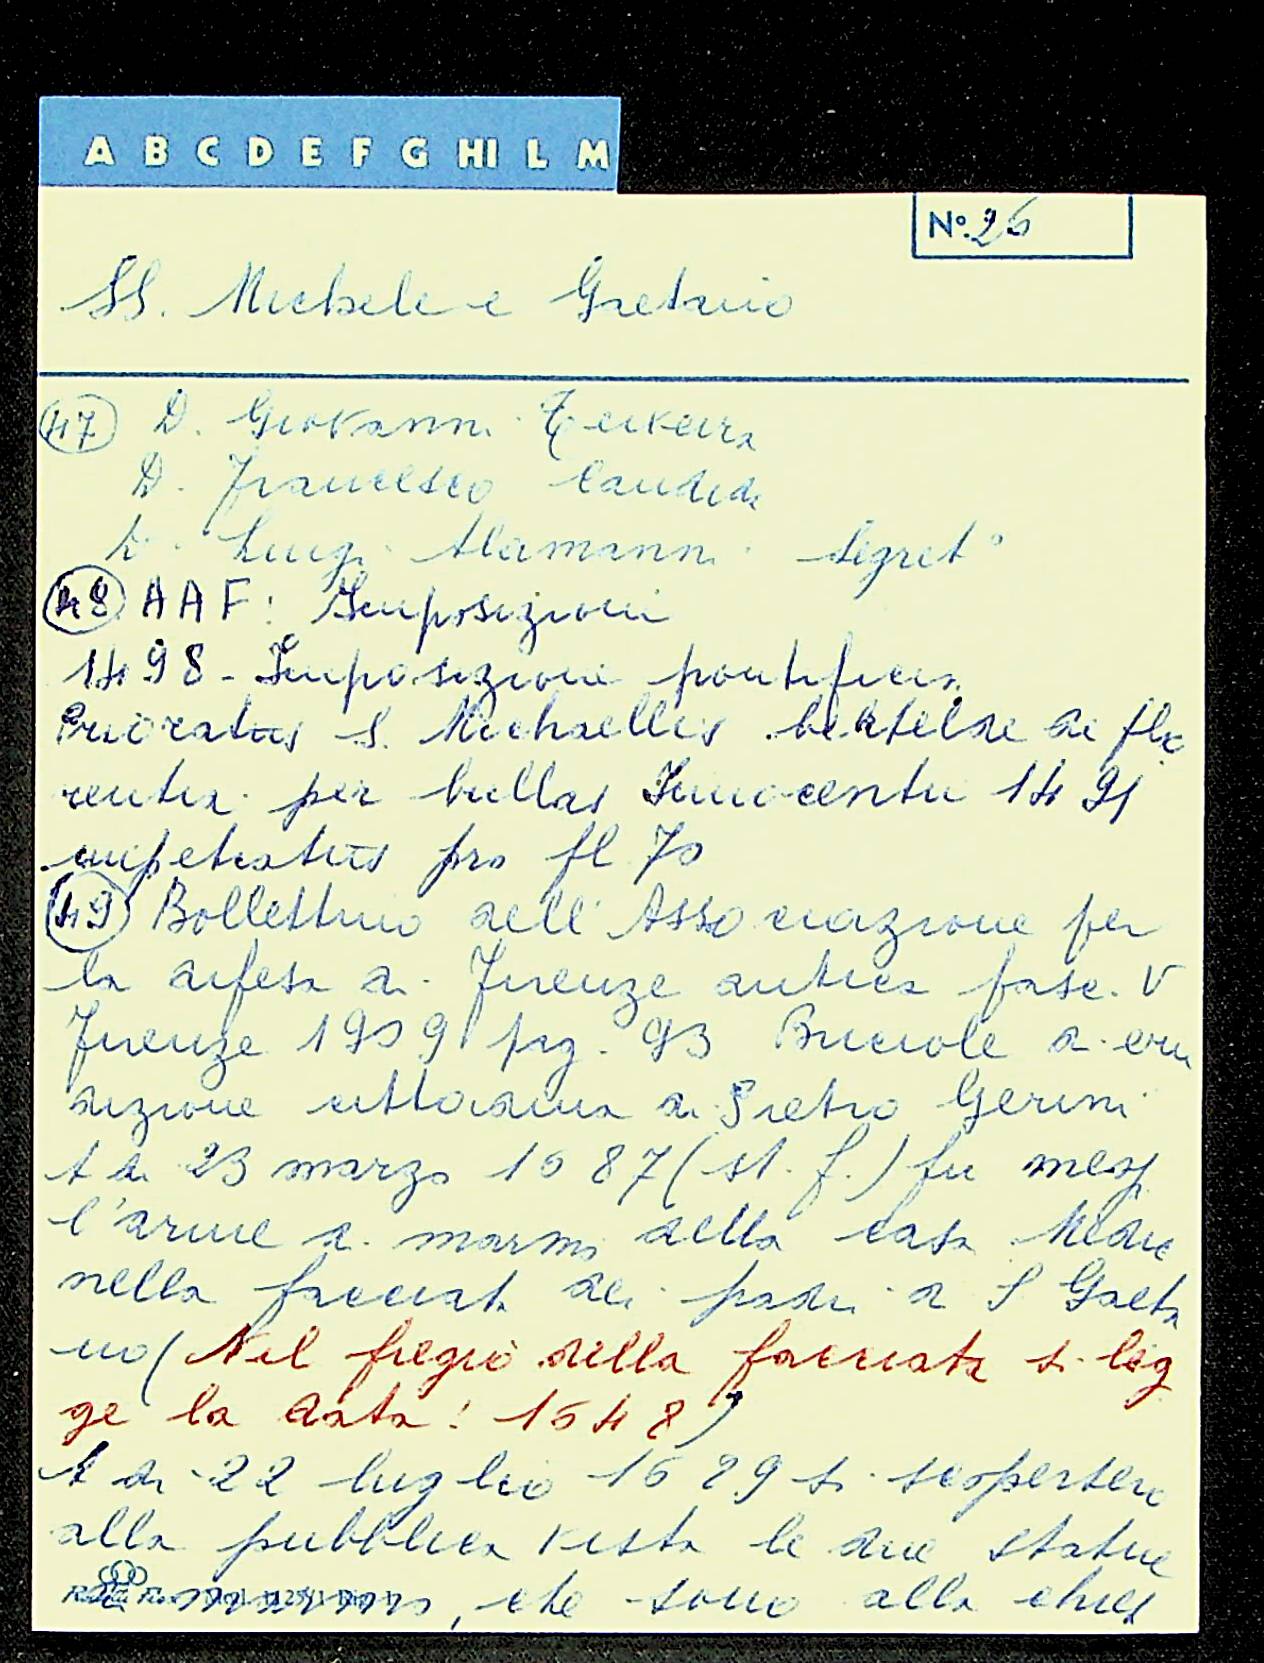 A B C D E F G HI L M
N° 26
SS. Michele e Gaetano
47 D. Giovanni Teixeira
D. Francesco Candidi
D. Luigi Alamanni Segret°
48 AAF: Imposizioni
1498 - Imposizione pontificia
Prioratus S. Michaellis bertelde de flo
rentia per bullas Innocentii 1491
impetratus pro fl 70
49 Bollettino dell'Associazione per
la difesa di Firenze antica fasc. V
Firenze 1909 pag. 93 Bricciole di eru
dizione cittadina di Pietro Gerini
A di 23 marzo 1687 (st. f.) fu messa
l'arme di marmo della casa Medici
nella facciata dei padri di S Gaeta
no (Nel fregio della facciata si leg
ge la data: 1648)
A di 22 luglio 1689 si scopersero
alla pubblica vista le due statue
di marmo, che sono alla chiesa